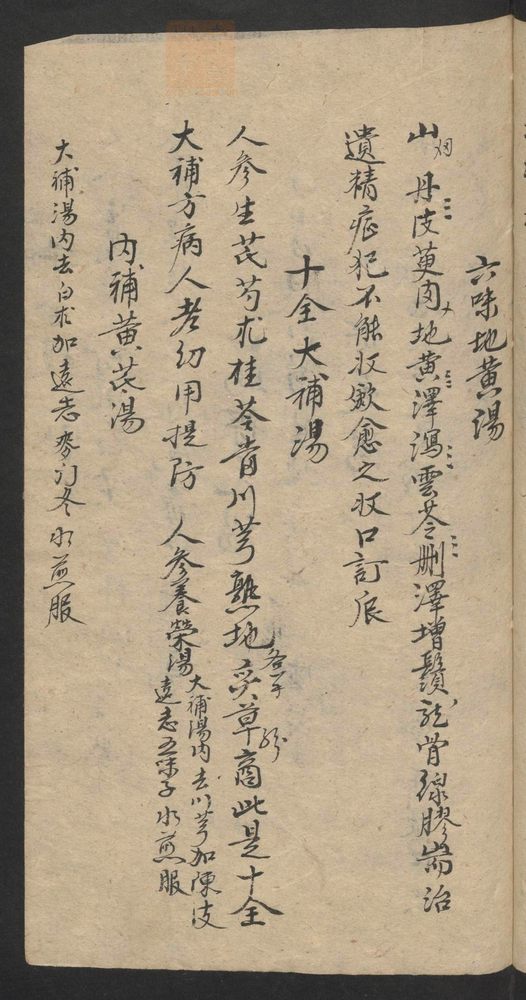 六味地黄湯
山丹皮萸肉地黄澤瀉雲苓删澤增鬚龍骨線膠耑治
遺精症犯不能收歛愈之收口訂底
十全大補湯
人參生芪芍朮桂苓當川芎熟地炙草商此是十全
大補方病人老幼用提防 人參養榮湯 大補湯內去川芎加陳皮
遠志五味子水煎服
內補黄芪湯
大補湯內去白朮加遠志麥门冬水煎服